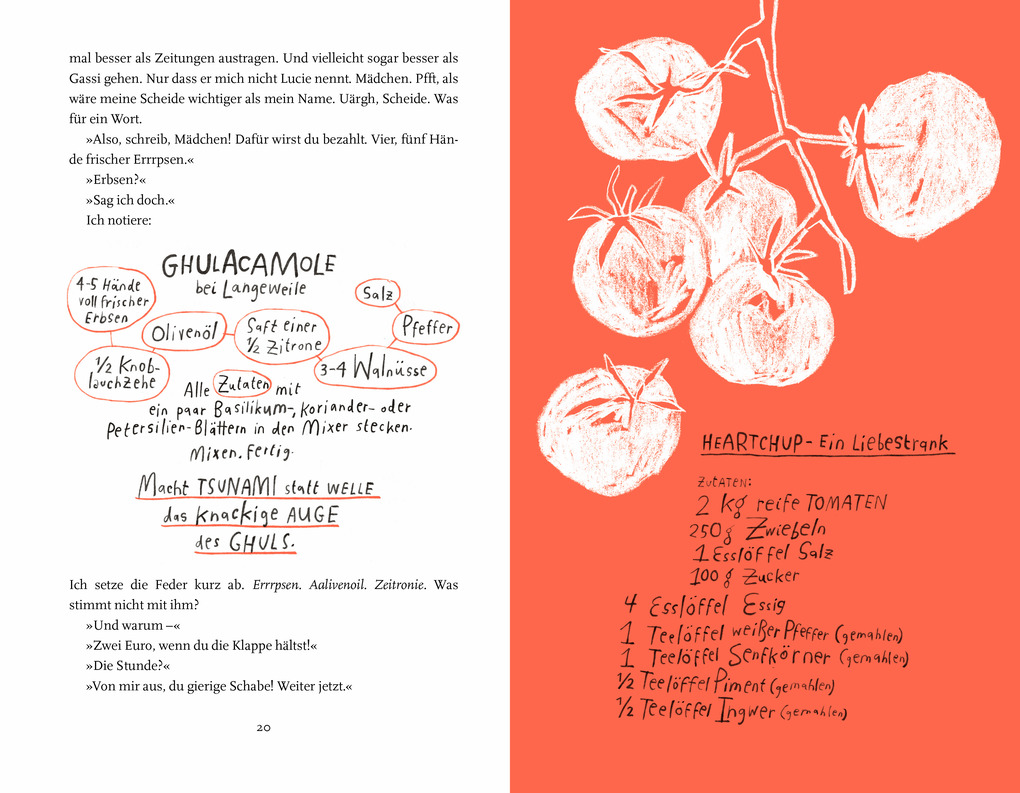 mal besser als Zeitungen austragen. Und vielleicht sogar besser als
Gassi gehen. Nur dass er mich nicht Lucie nennt. Mädchen. Pfft, als
wäre meine Scheide wichtiger als mein Name. Uärgh, Scheide. Was
für ein Wort.
»Also, schreib, Mädchen! Dafür wirst du bezahlt. Vier, fünf Hän-
de frischer Errrpsen.«
»Erbsen?«
»Sag ich doch.«
Ich notiere:
GHULACAMOLE
bei Langeweile
4-5 Hände
voll frischer
Erbsen
1/2 Knob-
lauchzehe
Olivenöl
Saft einer
1/2 Zitrone
3-4 Walnüsse
Pfeffer
Salz
Alle Zutaten mit
ein paar Basilikum-, Koriander- oder
Petersilien-Blättern in den Mixer stecken.
Mixen. Fertig.
Macht TSUNAMI statt WELLE
das knackige AUGE
des GHULS.
Ich setze die Feder kurz ab. Errrpsen. Aalivenoil. Zeitronie. Was
stimmt nicht mit ihm?
»Und warum –«
»Zwei Euro, wenn du die Klappe hältst!«
»Die Stunde?«
»Von mir aus, du gierige Schabe! Weiter jetzt.«
20
HEARTCHUP - Ein Liebestrank
ZUTATEN:
2 kg reife TOMATEN
250 g Zwiebeln
1 Esslöffel Salz
100 g Zucker
4 Esslöffel Essig
1 Teelöffel weißer Pfeffer (gemahlen)
1 Teelöffel Senfkörner (gemahlen)
1/2 Teelöffel Piment (gemahlen)
1/2 Teelöffel Ingwer (gemahlen)